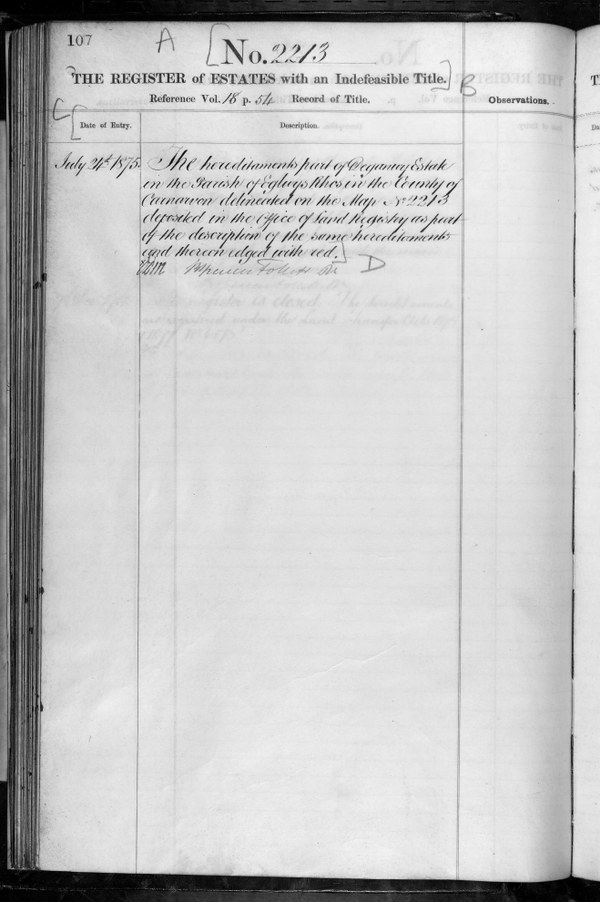 107
A [No. 2213
THE REGISTER of ESTATES with an Indefeasible Title.] B
Reference Vol. 18 p. 54 Record of Title.
Observations.
C [Date of Entry.
Description.
July 24th 1875.
The hereditaments part of Deganwy Estate
in the Parish of Eglwys Rhos in the County of
Carnarvon delineated on the Map No 2213
deposited in the Office of Land Registry as part
of the description of the same hereditaments
and thereon edged with red.]
D